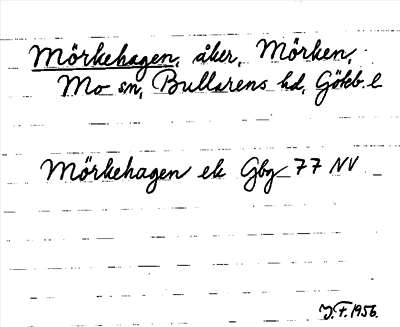 Mörkehagen, åker, Mörken,
Mo sn, Bullarens hd, Gökb. l
Mörkehagen ek Gbg 77 NV
J. F. 1956.